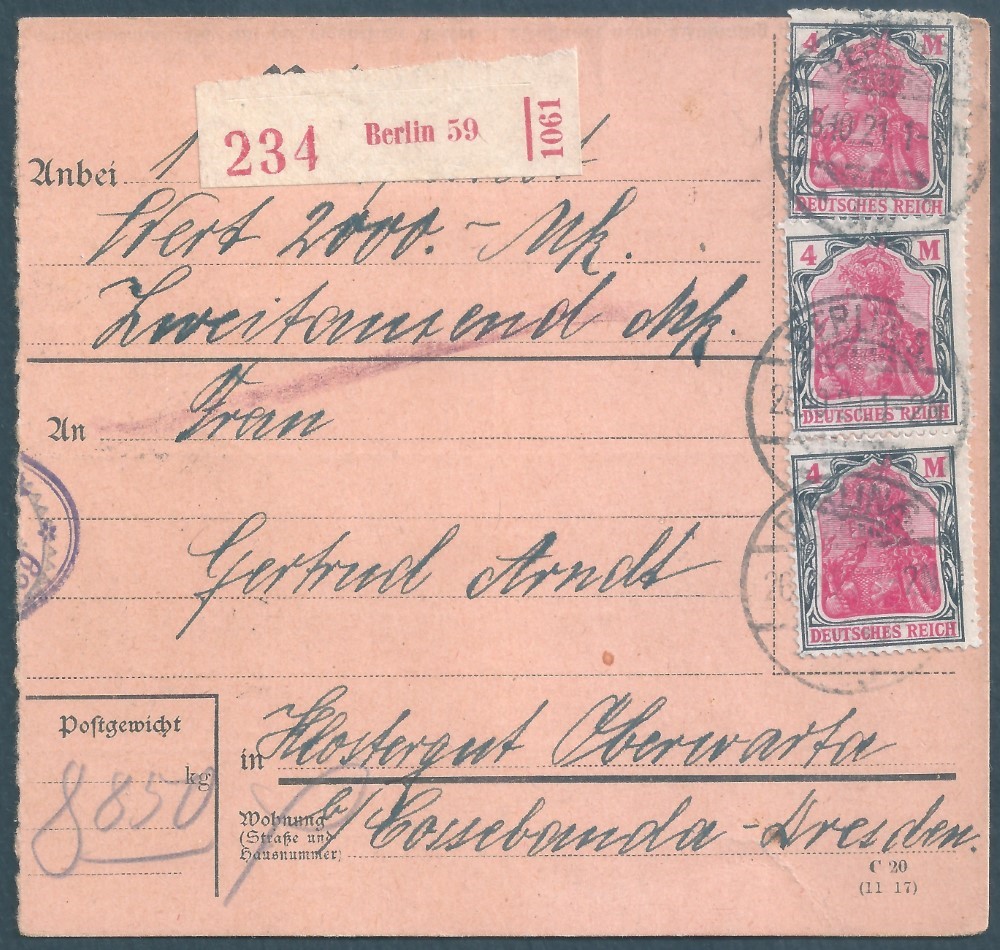 4 M
BERLIN
26.10.21. 1-
DEUTSCHES REICH
234 Berlin 59 1061
Anbei 1
Wert 2000.- Mk.
Zweitausend Mk.
4 M
BERLIN
DEUTSCHES REICH
An Frau
4 M
BERLIN
DEUTSCHES REICH
Gertrud Arndt
Postgewicht
8 850 kg
in Klostergut Oberwarta
Wohnung b/ Cossebauda-Dresden.
(Straße und
Hausnummer)
C 20
(11 17)